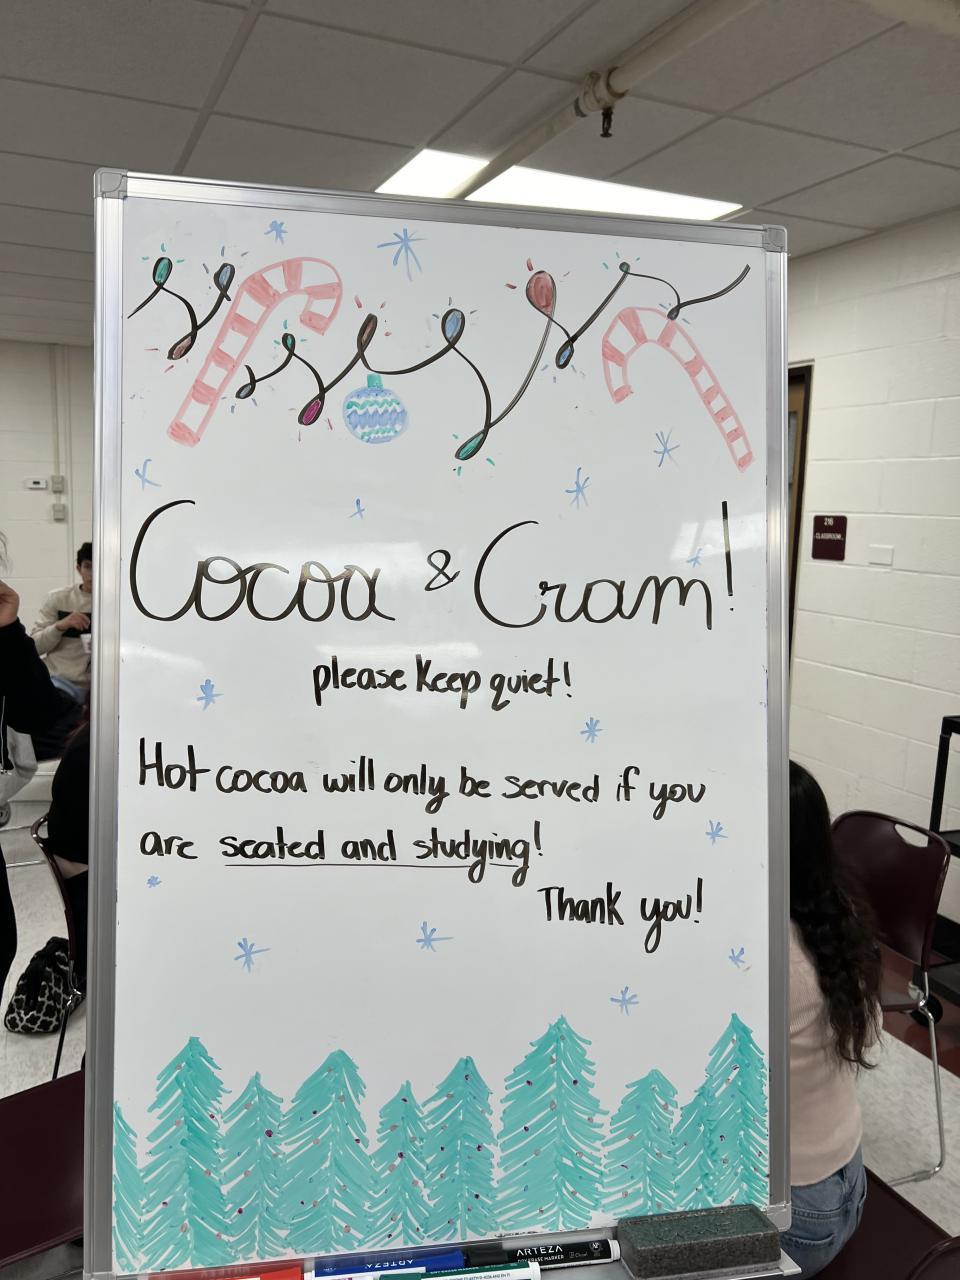 Cocoa & Cram!
please keep quiet!
Hot cocoa will only be served if you
are seated and studying!
Thank you!
216
CLASSROOM
ARTEZA
ARTEZA